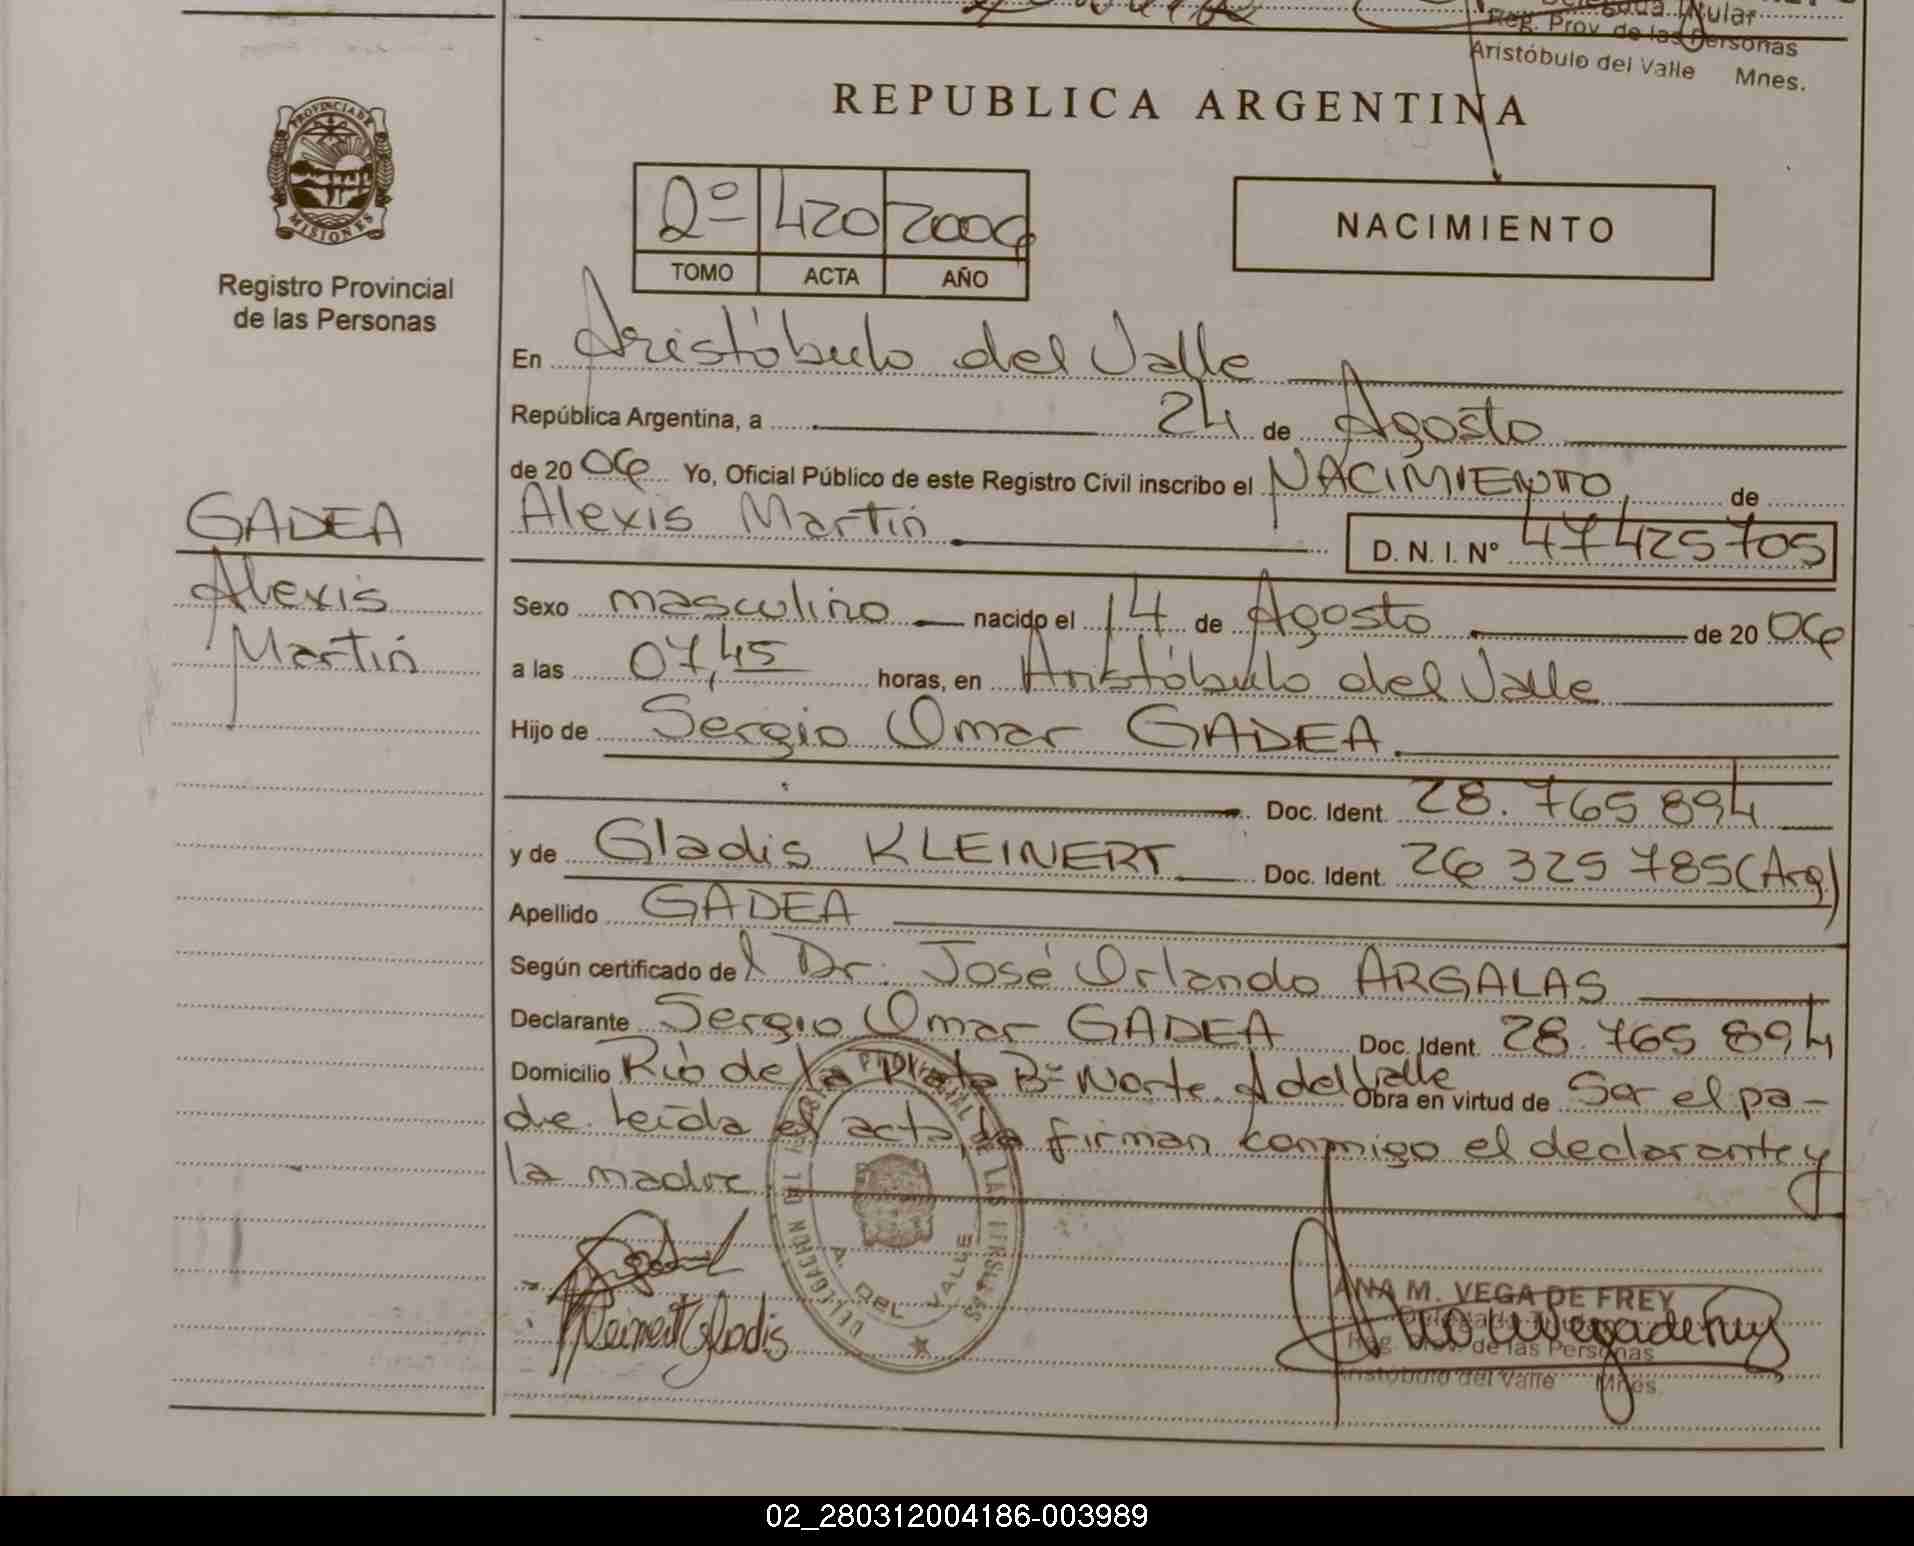 Delegada Titular
Reg. Prov. de las Personas
Aristóbulo del Valle Mnes.
PROVINCIA DE
MISIONES
Registro Provincial
de las Personas
REPUBLICA ARGENTINA
2º 420 2006
TOMO ACTA AÑO
NACIMIENTO
En Aristóbulo del Valle
República Argentina, a 24 de Agosto
de 20 06 Yo, Oficial Público de este Registro Civil inscribo el NACIMIENTO, de
GADEA
Alexis
Martin
Alexis Martin
D. N. I. Nº 47425705
Sexo masculino nacido el 14 de Agosto de 20 06
a las 07,45 horas, en Aristóbulo del Valle
Hijo de Sergio Omar GADEA
Doc. Ident. 28.765 894
y de Gladis KLEINERT Doc. Ident. 26 325 785 (Arg)
Apellido GADEA
Según certificado del Dr. José Orlando ARGALAS
Declarante Sergio Omar GADEA Doc. Ident. 28.765 894
Domicilio Rió de la Plata Bº Norte. A del Valle Obra en virtud de Ser el pa-
dre. Leída el acta, la firman conmigo el declarante y
la madre
DELEGACION DEL REGISTRO PROVINCIAL DE LAS PERSONAS
A. DEL VALLE
Kleinert Gladis
ANA M. VEGA DE FREY
Delegada Titular
Reg. Prov. de las Personas
Aristóbulo del Valle Mnes.
02_280312004186-003989